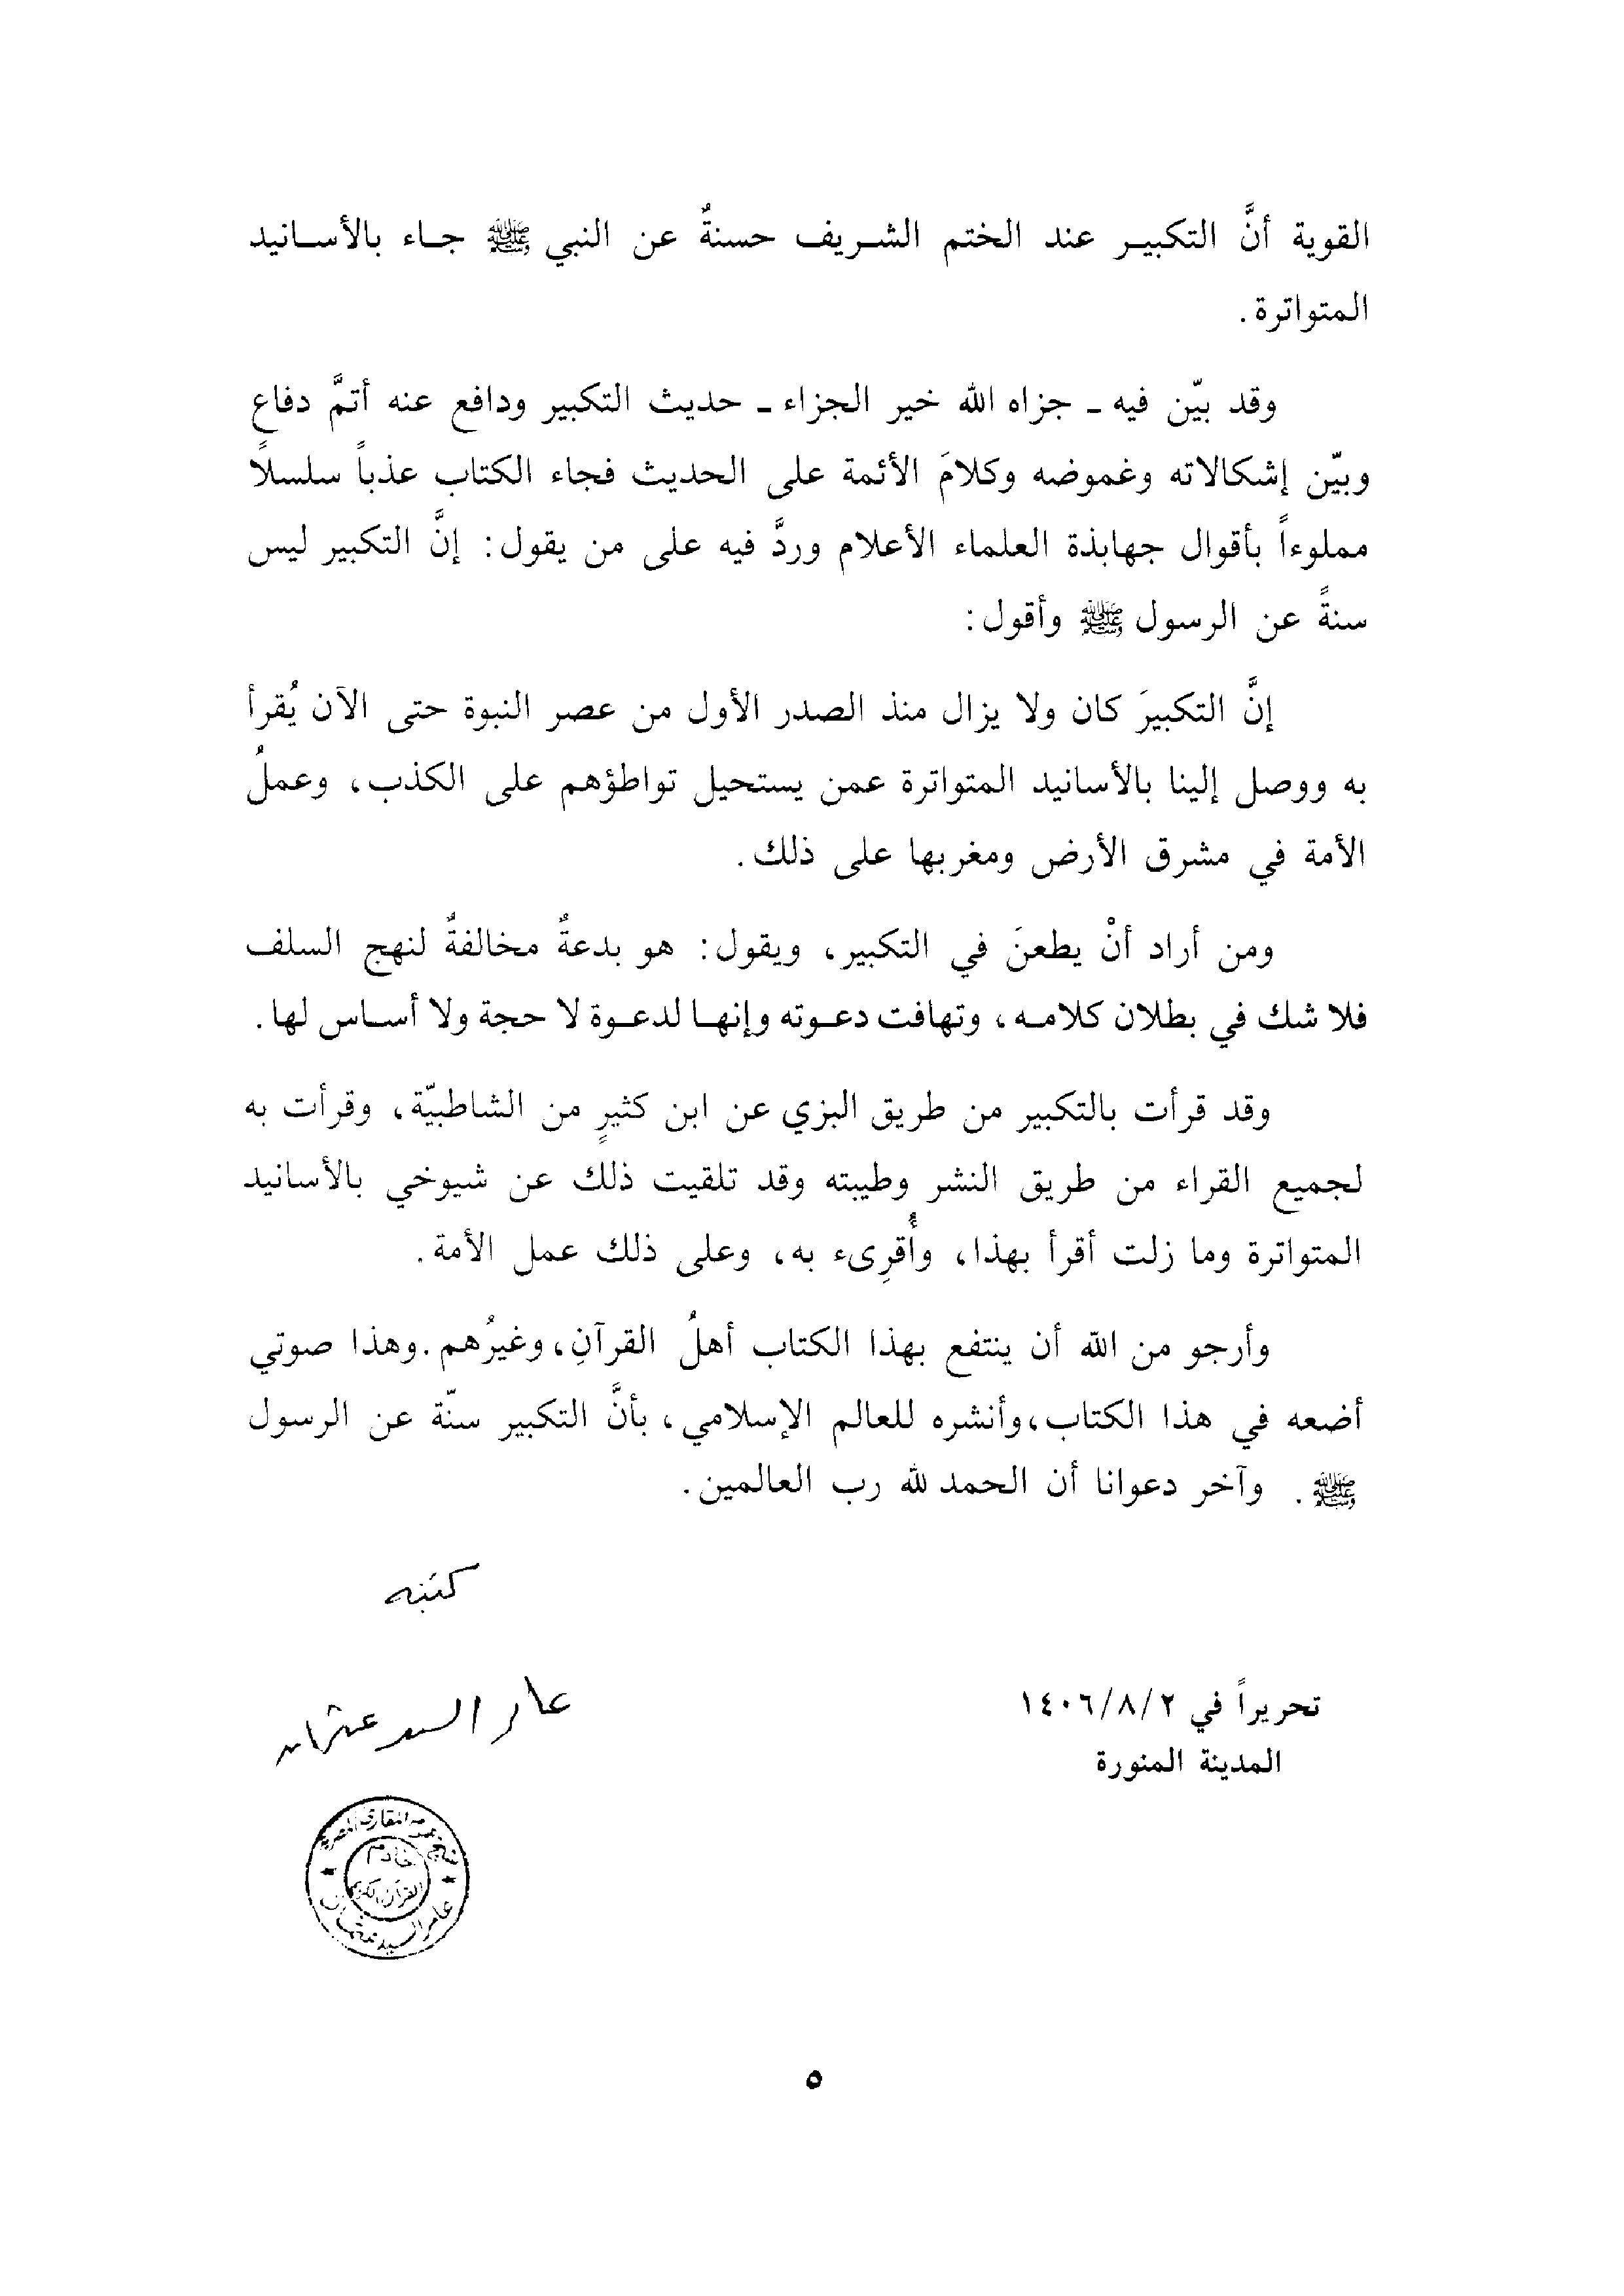 القوية أنَّ التكبيـر عند الختم الشـريف حسنةٌ عن النبي ﷺ جـاء بالأسـانيد
المتواترة.
وقد بيّن فيه ـ جزاه الله خير الجزاء ـ حديث التكبير ودافع عنه أتمَّ دفاع
وبيّن إشكالاته وغموضه وكلامَ الأئمة على الحديث فجاء الكتاب عذباً سلسلاً
مملوءاً بأقوال جهابذة العلماء الأعلام وردَّ فيه على من يقول: إنَّ التكبير ليس
سنةً عن الرسول ﷺ وأقول:
إنَّ التكبيرَ كان ولا يزال منذ الصدر الأول من عصر النبوة حتى الآن يُقرأ
به ووصل إلينا بالأسانيد المتواترة عمن يستحيل تواطؤهم على الكذب، وعملُ
الأمة في مشرق الأرض ومغربها على ذلك.
ومن أراد أنْ يطعنَ في التكبير، ويقول: هو بدعةٌ مخالفةٌ لنهج السلف
فلا شك في بطلان كلامـه، وتهافت دعـوته وإنهـا لدعـوة لا حجة ولا أسـاس لها.
وقد قرأت بالتكبير من طريق البزي عن ابن كثيرٍ من الشاطبيّة، وقرأت به
لجميع القراء من طريق النشر وطيبته وقد تلقيت ذلك عن شيوخي بالأسانيد
المتواترة وما زلت أقرأ بهذا، وأُقرِىء به، وعلى ذلك عمل الأمة.
وأرجو من الله أن ينتفع بهذا الكتاب أهلُ القرآنِ، وغيرُهم. وهذا صوتي
أضعه في هذا الكتاب، وأنشره للعالم الإسلامي، بأنَّ التكبير سنّة عن الرسول
ﷺ. وآخر دعوانا أن الحمد لله رب العالمين.
كتبه
عامر السيد عثمان
تحريراً في ١٤٠٦/٨/٢
المدينة المنورة
خادم
القرآن الكريم
عامر السيد عثمان
٥